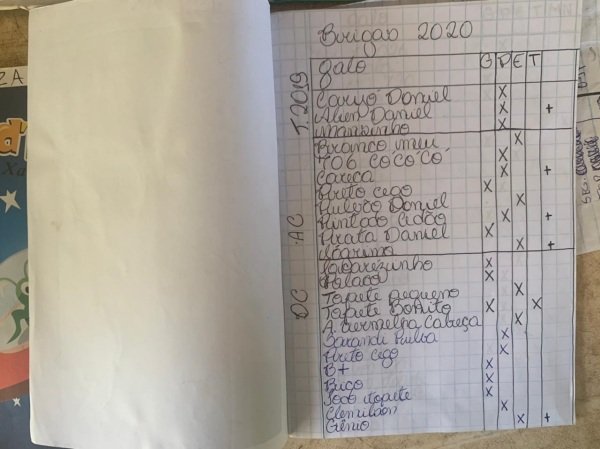 Brigão 2020
galo G P E T
T. 2019
Caruó Daniel X
Alien Daniel X +
Mansinho X
AC
Branco meu X
706 cócócó X
Careca X +
Preto cego X
Pulero Daniel X
Pintado Cidão X +
Prata Daniel X
X +
DC
Jacarezinho X
Palaço X
Topete pequeno X
Topete Bonito X X
A. vermelha Cabeça X
Sarandi Pulva X
Preto cego X
B+ X
Bico X
João topete X
Clemilson X
Gênio X +